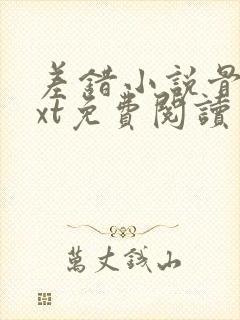 差錯小説骨
xt免費閱讀
萬丈錢山